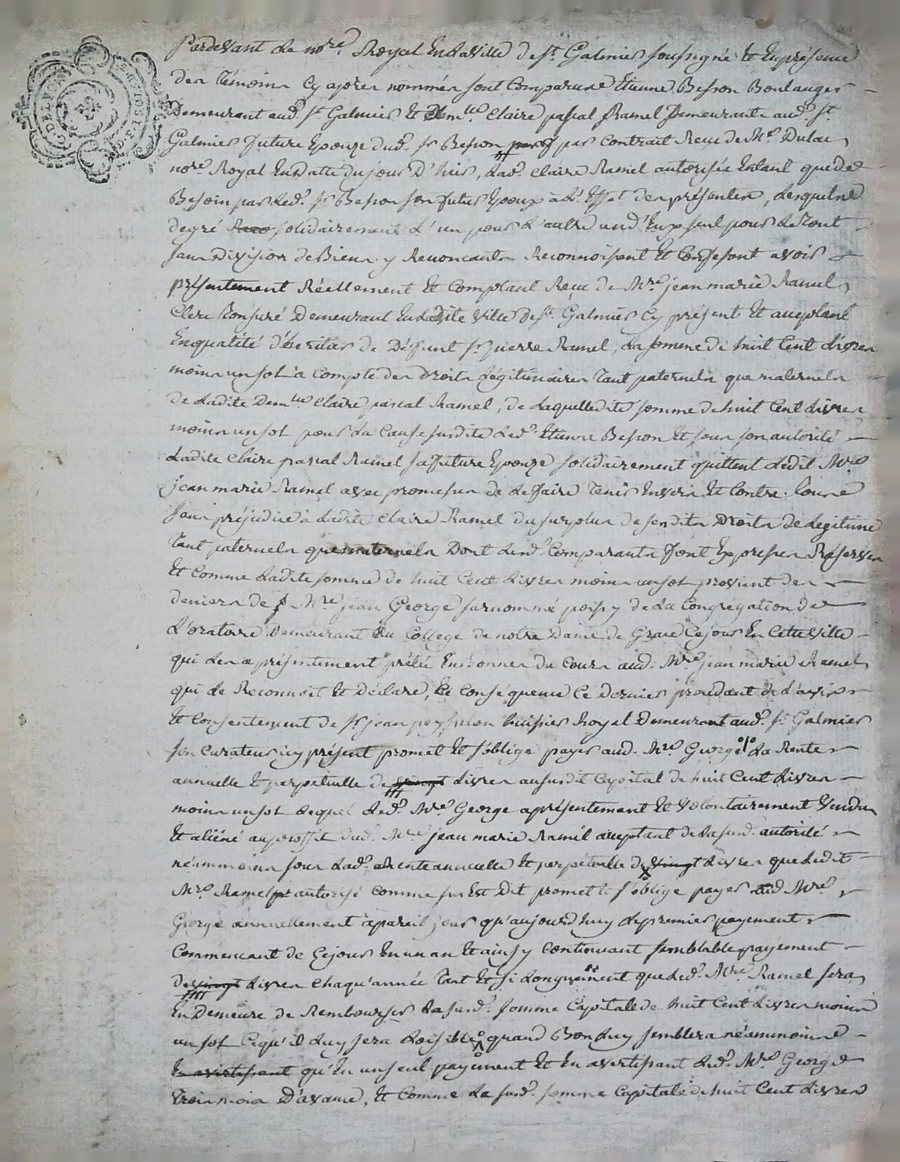 Pardevant Le no.re Royal En La Ville de St. Galmier soussigné et En présence
des Témoins Cy après nommés sont Comparus Etienne Besson Boulanger
Demeurant aud. St. Galmier et Dem.lle Claire pascal Ramel Demeurante aud. St.
Galmier future Epouze dud. Sr. Besson par Contrait Reçu de Me. Dulac
no.re Royal En Datte du jour D'hier, Lad. Claire Ramel autorisée En tant que de
Besoin par Led. Sr Besson son futur Epoux à L'Effet des présentes, Lesquels de
degré solidairement L'un pour L'autre un d'Eux seul pour Le Tout
sans Division de Biens y Renonçants Reconnoissent et Confessent avoir
présentement Réellement Et Comptant Reçu de Mre jean marie Ramel
Clerc Tonsuré Demeurant En Ladite Ville de St. Galmier Cy présent Et acceptant
En qualité d'héritier de Deffunt Sr. pierre Ramel, La somme de huit Cent Livres
moins un sol à Compte des Droits Légitimaires Tant paternels que maternels
de Ladite Dem.lle Claire pascal Ramel, de Laquelle dite somme de huit Cent Livres
moins un sol pour La Cause susdite Led. Etienne Besson Et sous son autorité
Ladite Claire pascal Ramel sa future Epouze solidairement quittent Ledit Mre
jean marie Ramel avec promesse de Le faire Tenir Envers Et Contre Tous
sans préjudice à Ladite Claire Ramel du surplus de ses dits Droits de Legitime
Tant paternels que maternels Dont Lesd. Comparants font Expresses Réserves
Et Comme Ladite somme de huit Cent Livres moins un sol provient des
deniers de Mre jean George surnommé poissy de La Congrégation de
L'oratoire Demeurant au College de notre Dame de Grace Ce jour En Cette Ville
qui Les a présentement prêtée En Bonnes du Cours aud. Mre jean marie Ramel
qui Le Reconnoit Et Déclare, En Conséquence Ce Dernier procédant de L'avis
Et Consentement de Sr jean huissier Royal Demeurant aud. St. Galmier
son Curateur icy présent promet Et s'oblige payer aud. Mre George La Rente
annuelle Et perpetuelle de vingt Livres au susdit Capital de huit Cent Livres
moins un sol Lequel Led. Mre George a présentement Et Volontairement Vendu
Et aliéné au proffit dud. Mre jean marie Ramel acceptant de La susd. autorité
néammoins sous Lad. Rente annuelle Et perpetuelle de vingt Livres que Ledit
Mre Ramel autorisé Comme sus Est Dit promet Et s'oblige payer aud Mre
George annuellement à pareil jour qu'aujourd'huy Le premier payement
Commencant de Ce jour En un an Et ainsy Continuant semblable payement
de vingt Livres Chaqu'année Tant Et si Longuement que Led. Mre Ramel sera
En Demeure de Rembourser La susd. somme Capitale de huit Cent Livres moins
un sol Ce qu'il Luy sera Loisible quand Bon Luy semblera néammoins
En avertissant qu'En un seul payement Et En avertissant Led. Mre George
Trois mois D'avance, Et Comme La susd. somme Capitale de huit Cent Livres